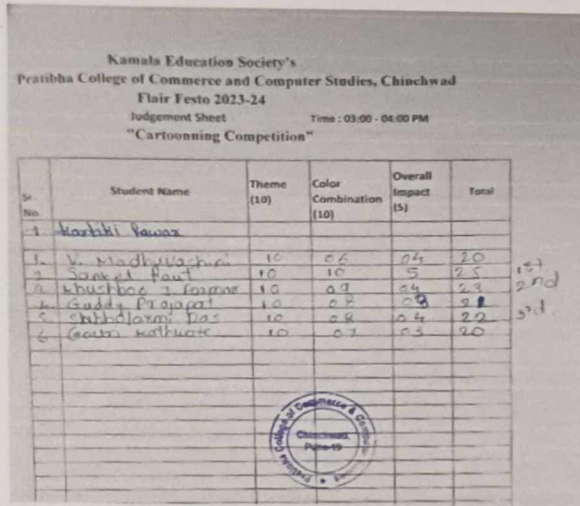 Kamala Education Society's
Pratibha College of Commerce and Computer Studies, Chinchwad
Flair Festo 2023-24
Judgement Sheet Time : 03:00 - 04:00 PM
"Cartoonning Competition"
Sr. No. Student Name Theme (10) Color Combination (10) Overall Impact (5) Total
1 Kartiki Pawar
1. V. Madhuvashini 10 06 04 20
2 Sanket Raut 10 10 5 25 1st
3 Khushboo 10 09 04 23 2nd
4. Guddy Prajapat 10 08 03 21
5. Shubhalaxmi Das 10 08 04 22 3rd
6 10 07 03 20
Pratibha College of Commerce & Computer
Chinchwad,
Pune-19